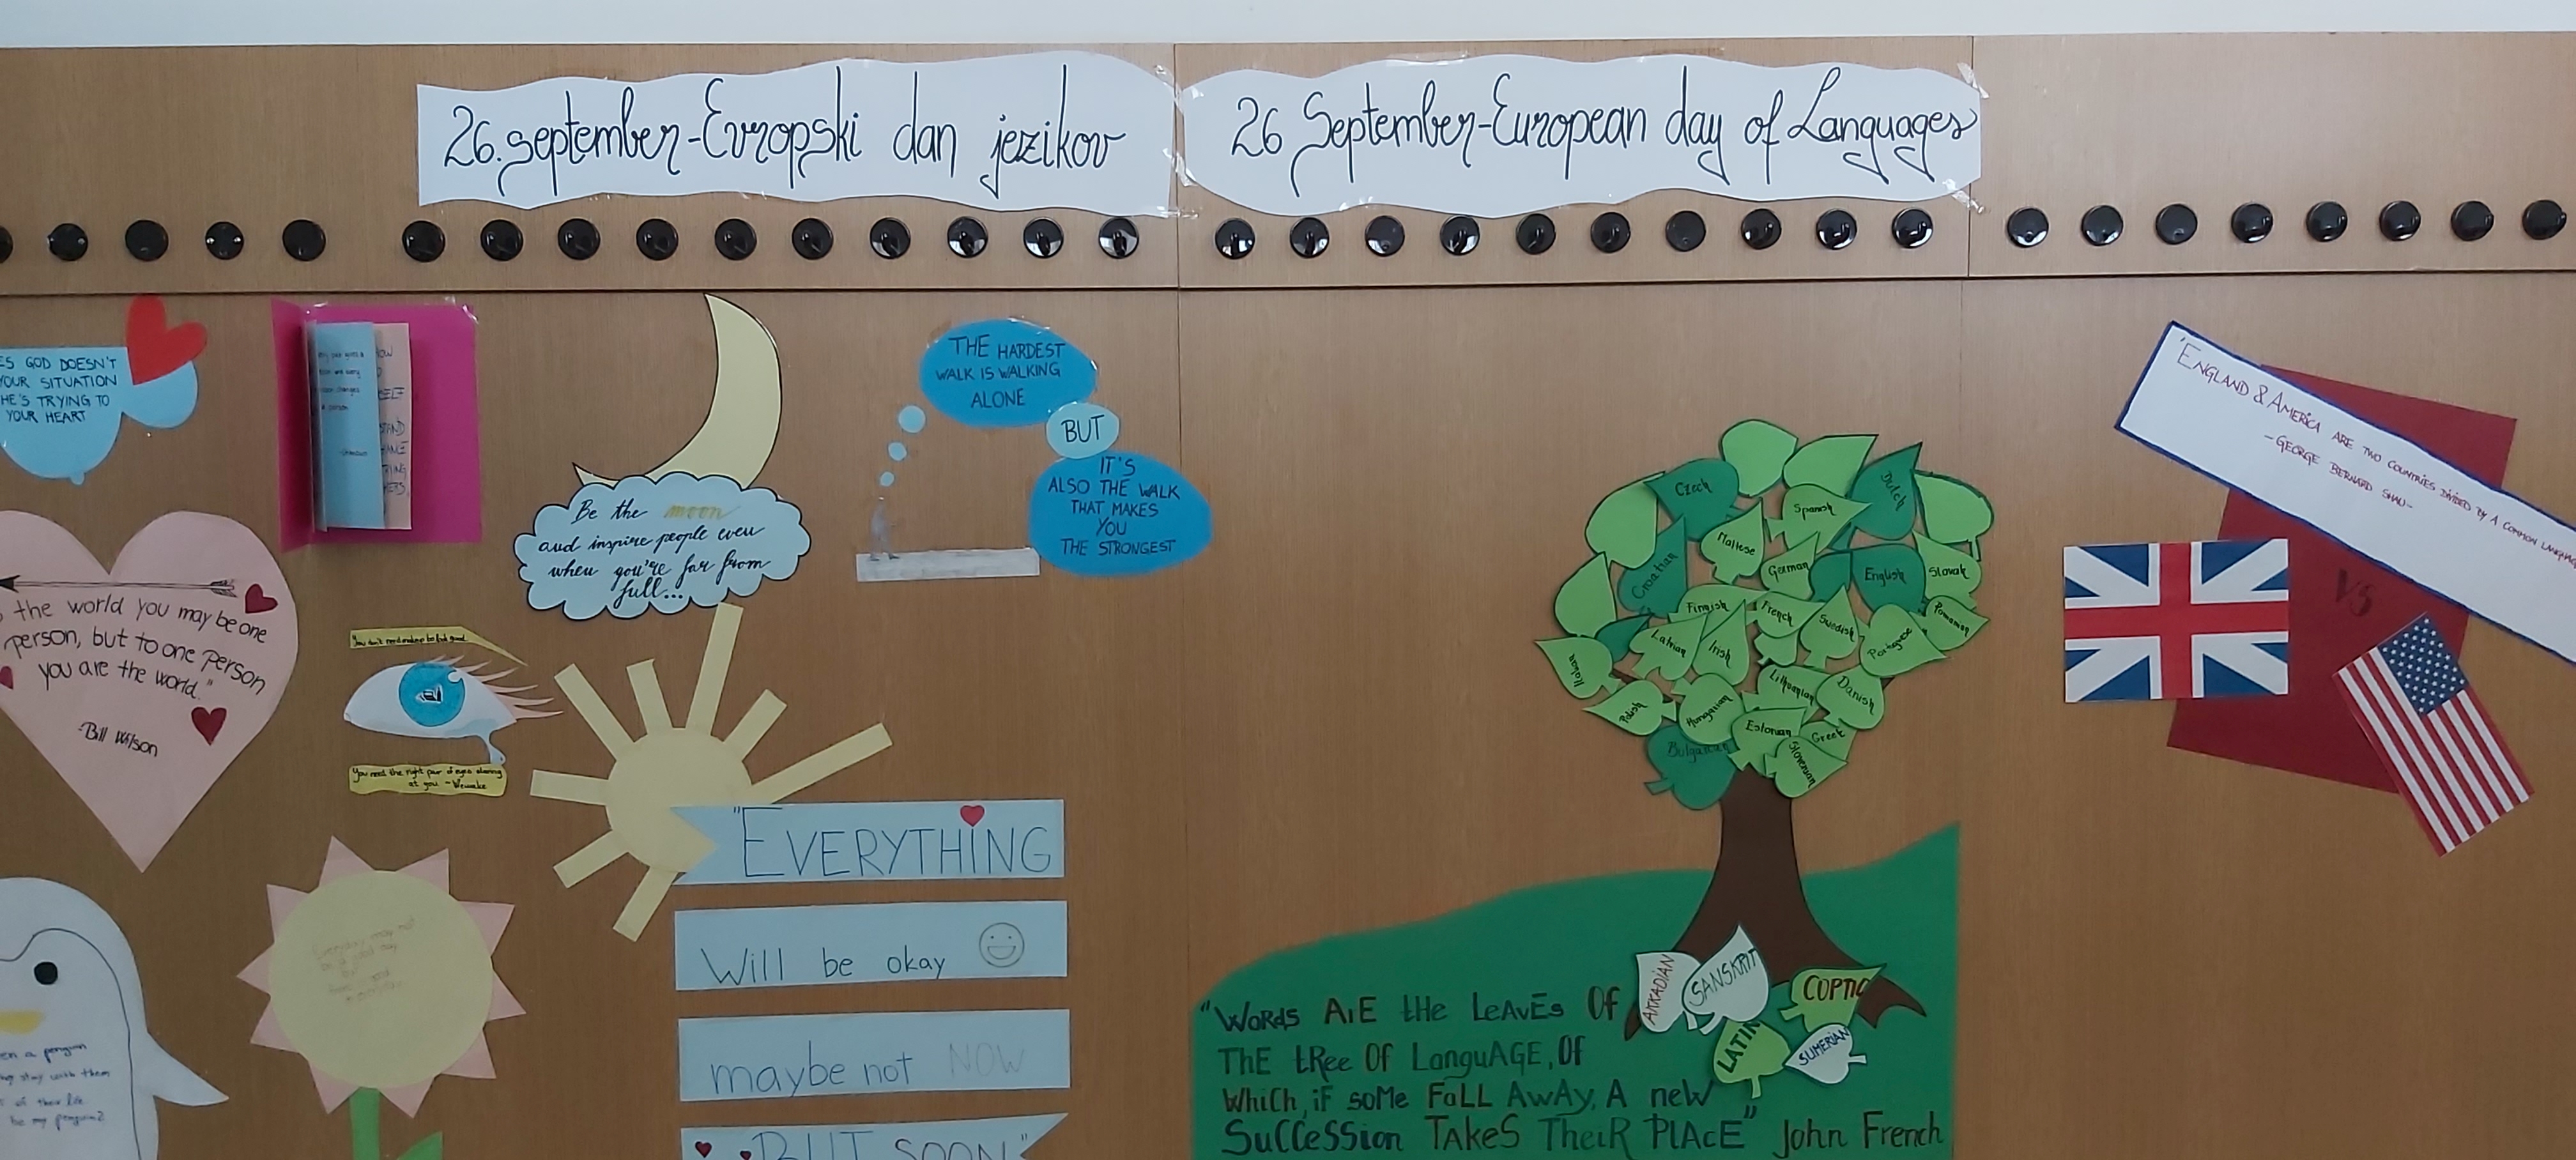 26. september - Evropski dan jezikov
26 September - European day of Languages
ES GOD DOESN'T
YOUR SITUATION
HE'S TRYING TO
YOUR HEART
THE HARDEST
WALK IS WALKING
ALONE
BUT
IT'S
ALSO THE WALK
THAT MAKES
YOU
THE STRONGEST
Be the moon
and inspire people even
when you're far from
full...
the world you may be one
person, but to one person
you are the world."
-Bill Wilson
You need the right pair of eyes staring
at you
"EVERYTHING
Will be okay
maybe not NOW
BUT SOON"
en a penguin
stay with them
of their life
be my penguin?
Czech
Dutch
Spanish
Maltese
Croatian
German
English
Slovak
Finnish
French
Romanian
Latvian
Irish
Swedish
Portugese
Italian
Lithuanian
Danish
Polish
Hungarian
Estonian
Greek
Bulgarian
Slovenian
AKKADIAN
SANSKRIT
COPTIC
LATIN
SUMERIAN
"WoRdS ArE tHe LeAvEs Of
ThE tRee Of LanguAGE, Of
WhiCh, iF soMe FaLL AwAy, A new
SuCCeSSion TAkeS TheiR PlAcE" John French
'ENGLAND & AMERICA ARE TWO COUNTRIES DIVIDED BY A COMMON LANGUAGE
-GEORGE BERNARD SHAW-
VS